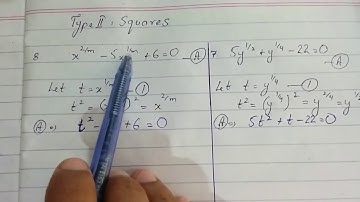 Type II : Squares
8 x^{2/m} - 5x^{1/m} + 6 = 0 — Ⓐ
Let t = x^{1/m} — ①
t² = ( )² = x^{2/m}
Ⓐ ⇒ t² - + 6 = 0
7 5y^{1/2} + y^{1/4} - 22 = 0 Ⓐ
Let t = y^{1/4} — ①
t² = (y^{1/4})² = y^{2/4} = y^{1/2}
Ⓐ ⇒ 5t² + t - 22 = 0